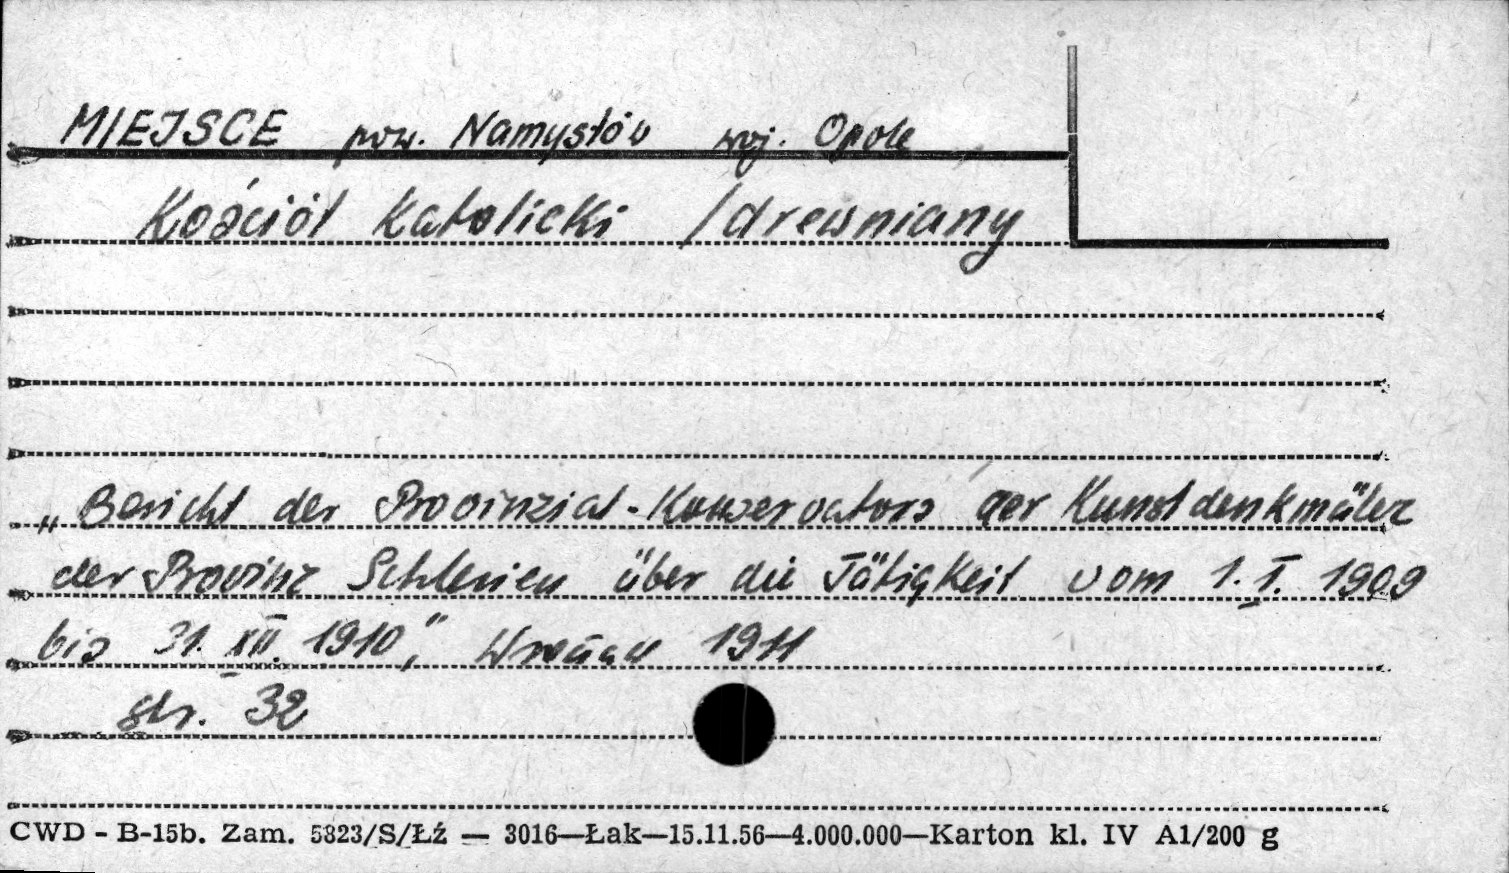 MIEJSCE pow. Namysłów woj. Opole
Kościół Katolicki /drewniany
„Bericht der Provinzial-Konservators der Kunstdenkmäler
der Provinz Schlesien über die Tätigkeit vom 1.I. 1909
bis 31. XII. 1910", 1911
str. 32
CWD - B-15b. Zam. 5823/S/Łź — 3016—Łak—15.11.56—4.000.000—Karton kl. IV A1/200 g